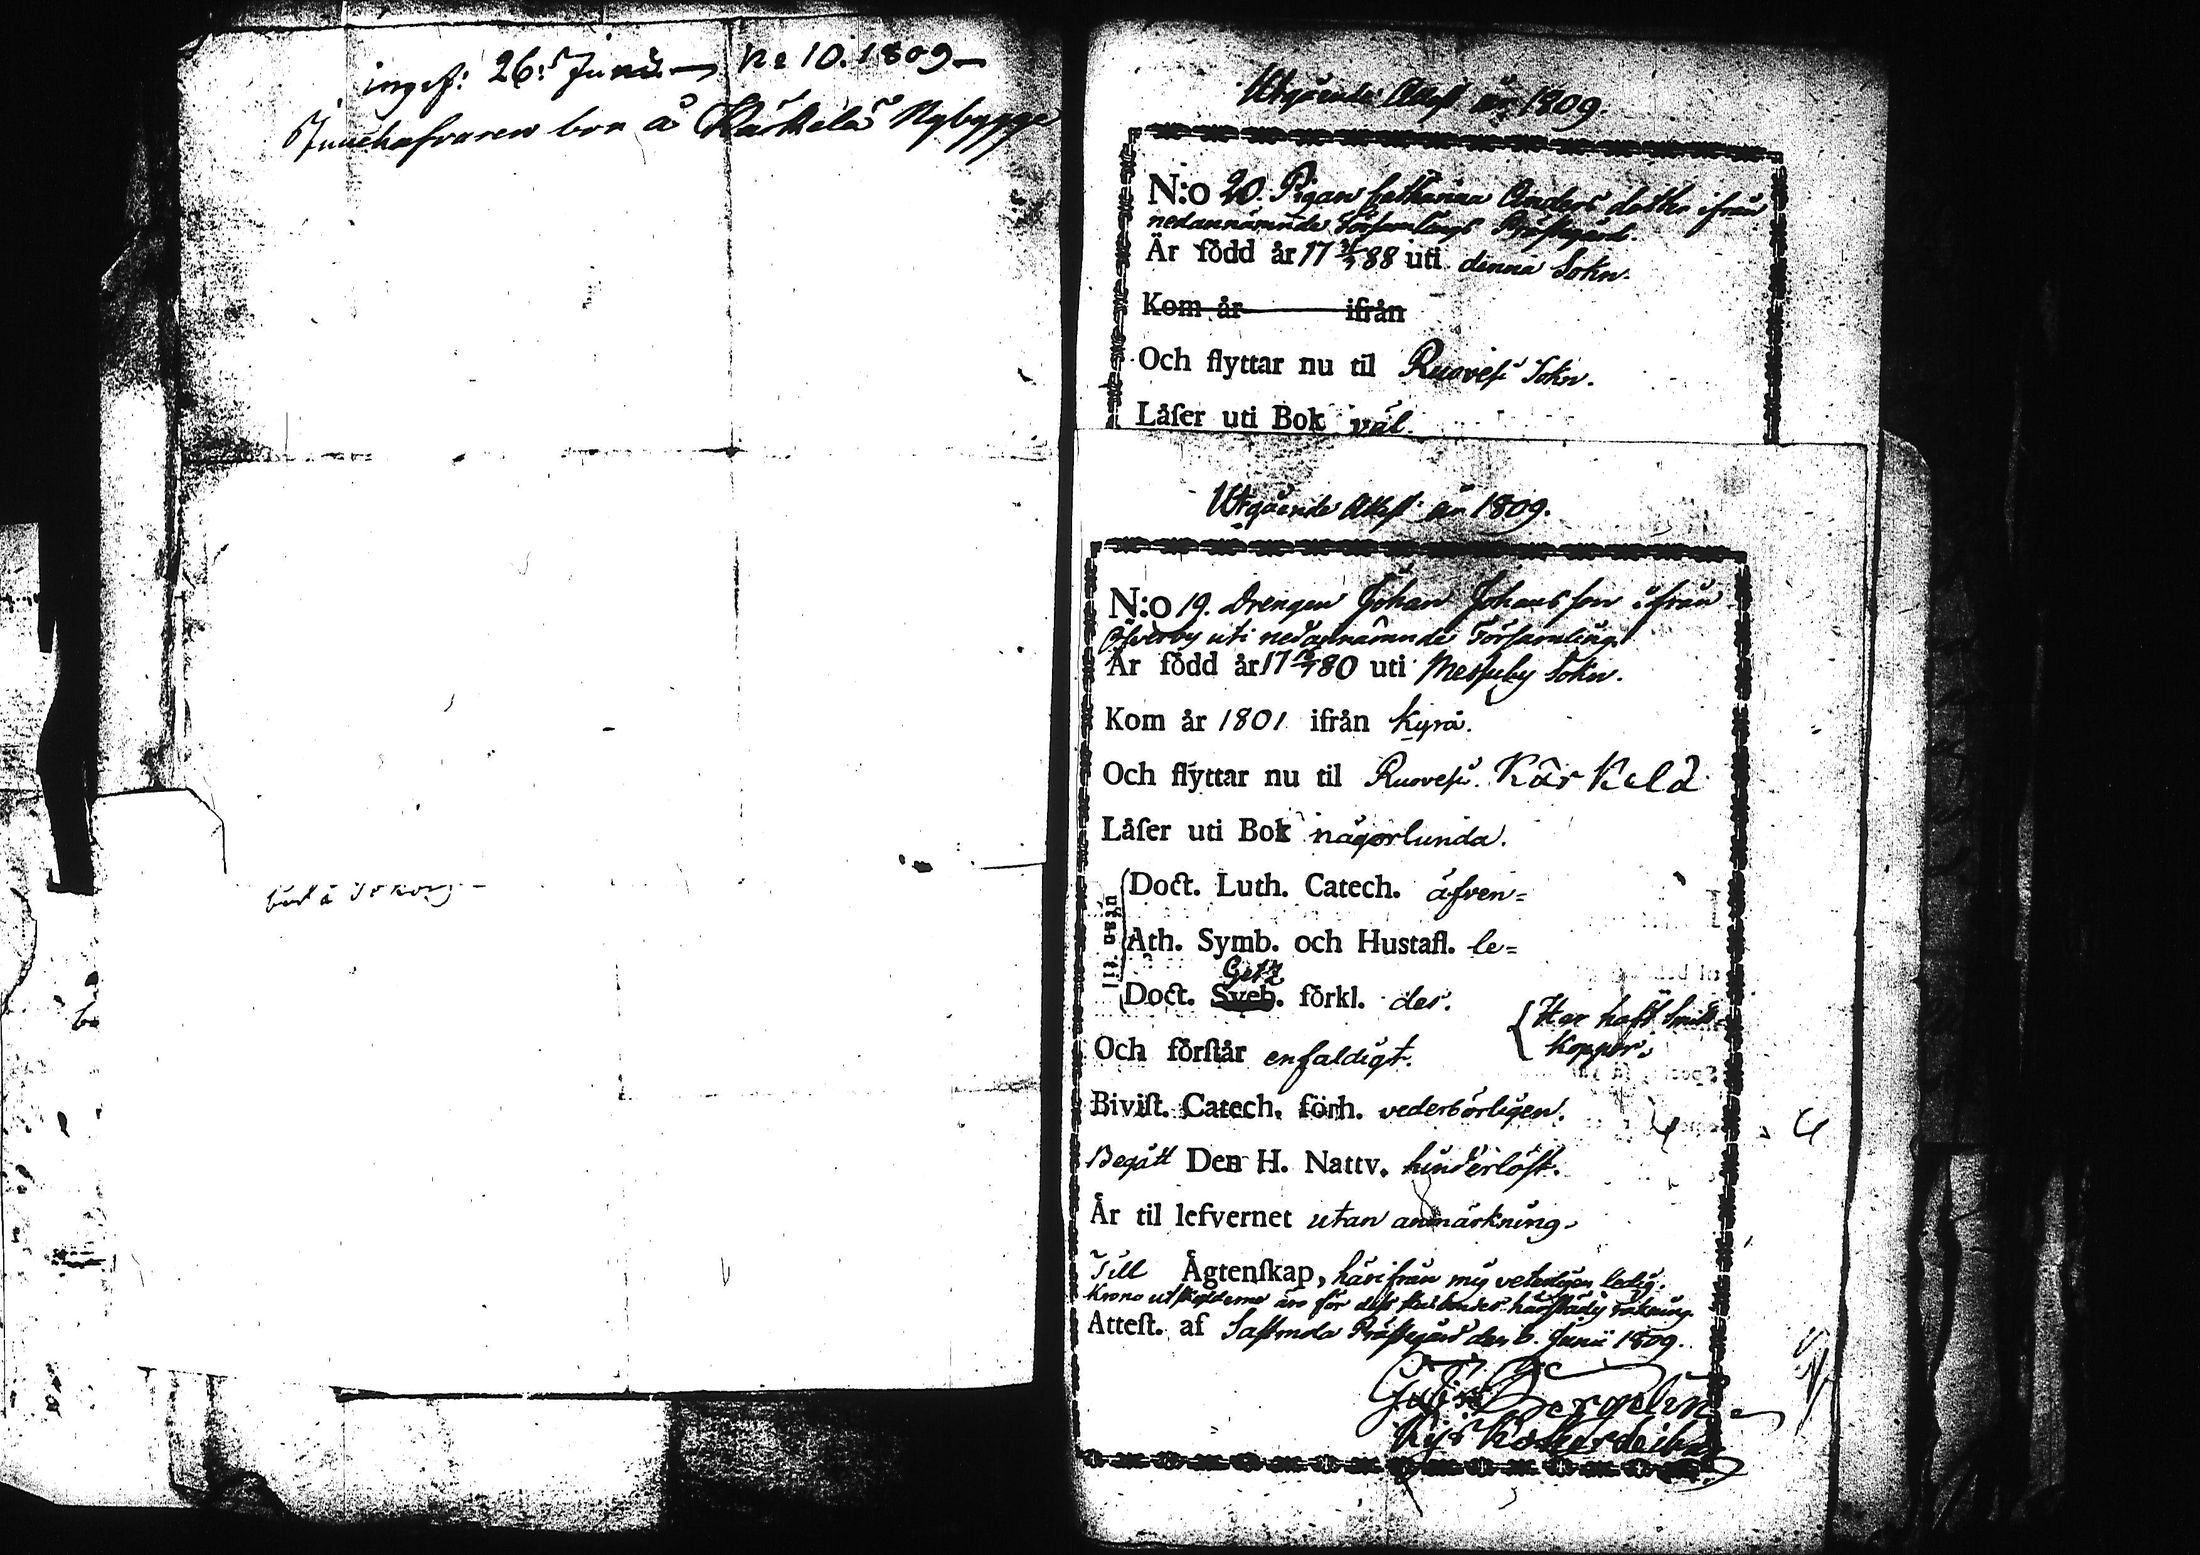 ingif: 26: Junii. — No 10. 1809 —
Innehafvaren bor å Kärkelä Nybygge
bor å
Utgående Attest år 1809.
N:o 20. Pigan Catharina Anders dotter ifrån
nedannämnde Församlings Prästegård.
Är född år 17 88 uti denna Sokn.
Kom år ifrån
Och flyttar nu til Ruovesi Sokn.
Låſer uti Bok väl.
Utgående Attest år 1809.
N:o 19. Drengen Johan Johansson ifrån
Öfverby uti nedannämnde Församling.
Är född år 17 80 uti Messuby Sokn.
Kom år 1801 ifrån Kyrö.
Och flyttar nu til Ruovesi. Kärkelä
Låſer uti Bok någorlunda.
utan til
Doct. Luth. Catech. äfven=
Ath. Symb. och Hustafl. le=
Getz
Doct. Sveb. förkl. des.
{Har haft Små=
koppor.
Och förſtår enfaldigt.
Biviſt. Catech. förh. vederbörligen.
Begått Den H. Nattv. hinderlöst.
Är til lefvernet utan anmärkning.
Till Ägtenſkap, härifrån mig veterligen ledig.
Krono utskylderne äro för dess husbondes härstädes räkning.
Atteſt. af Sastmola Prästegård den 6. Junii 1809.
Bergelin